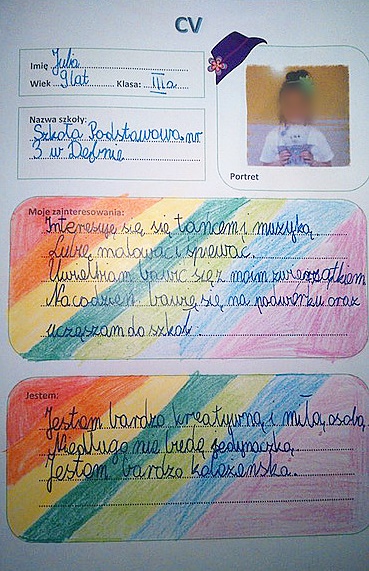 CV
Imię Julia
Wiek 9 lat Klasa: IIIa
Nazwa szkoły:
Szkoła Podstawowa nr
3 w Dębnie
Portret
Moje zainteresowania:
Interesuje się się tańcem i muzyką,
Lubię malować i śpiewać.
Uwielbiam bawić się z moim zwierzątkiem
Nacodzień bawię się na podwórzu oraz
uczęszam do szkoł.
Jestem:
Jestem bardzo kreatywną i miłą osobą.
Niedługo nie będę jedynaczką.
Jestem bardzo koleżeńska.